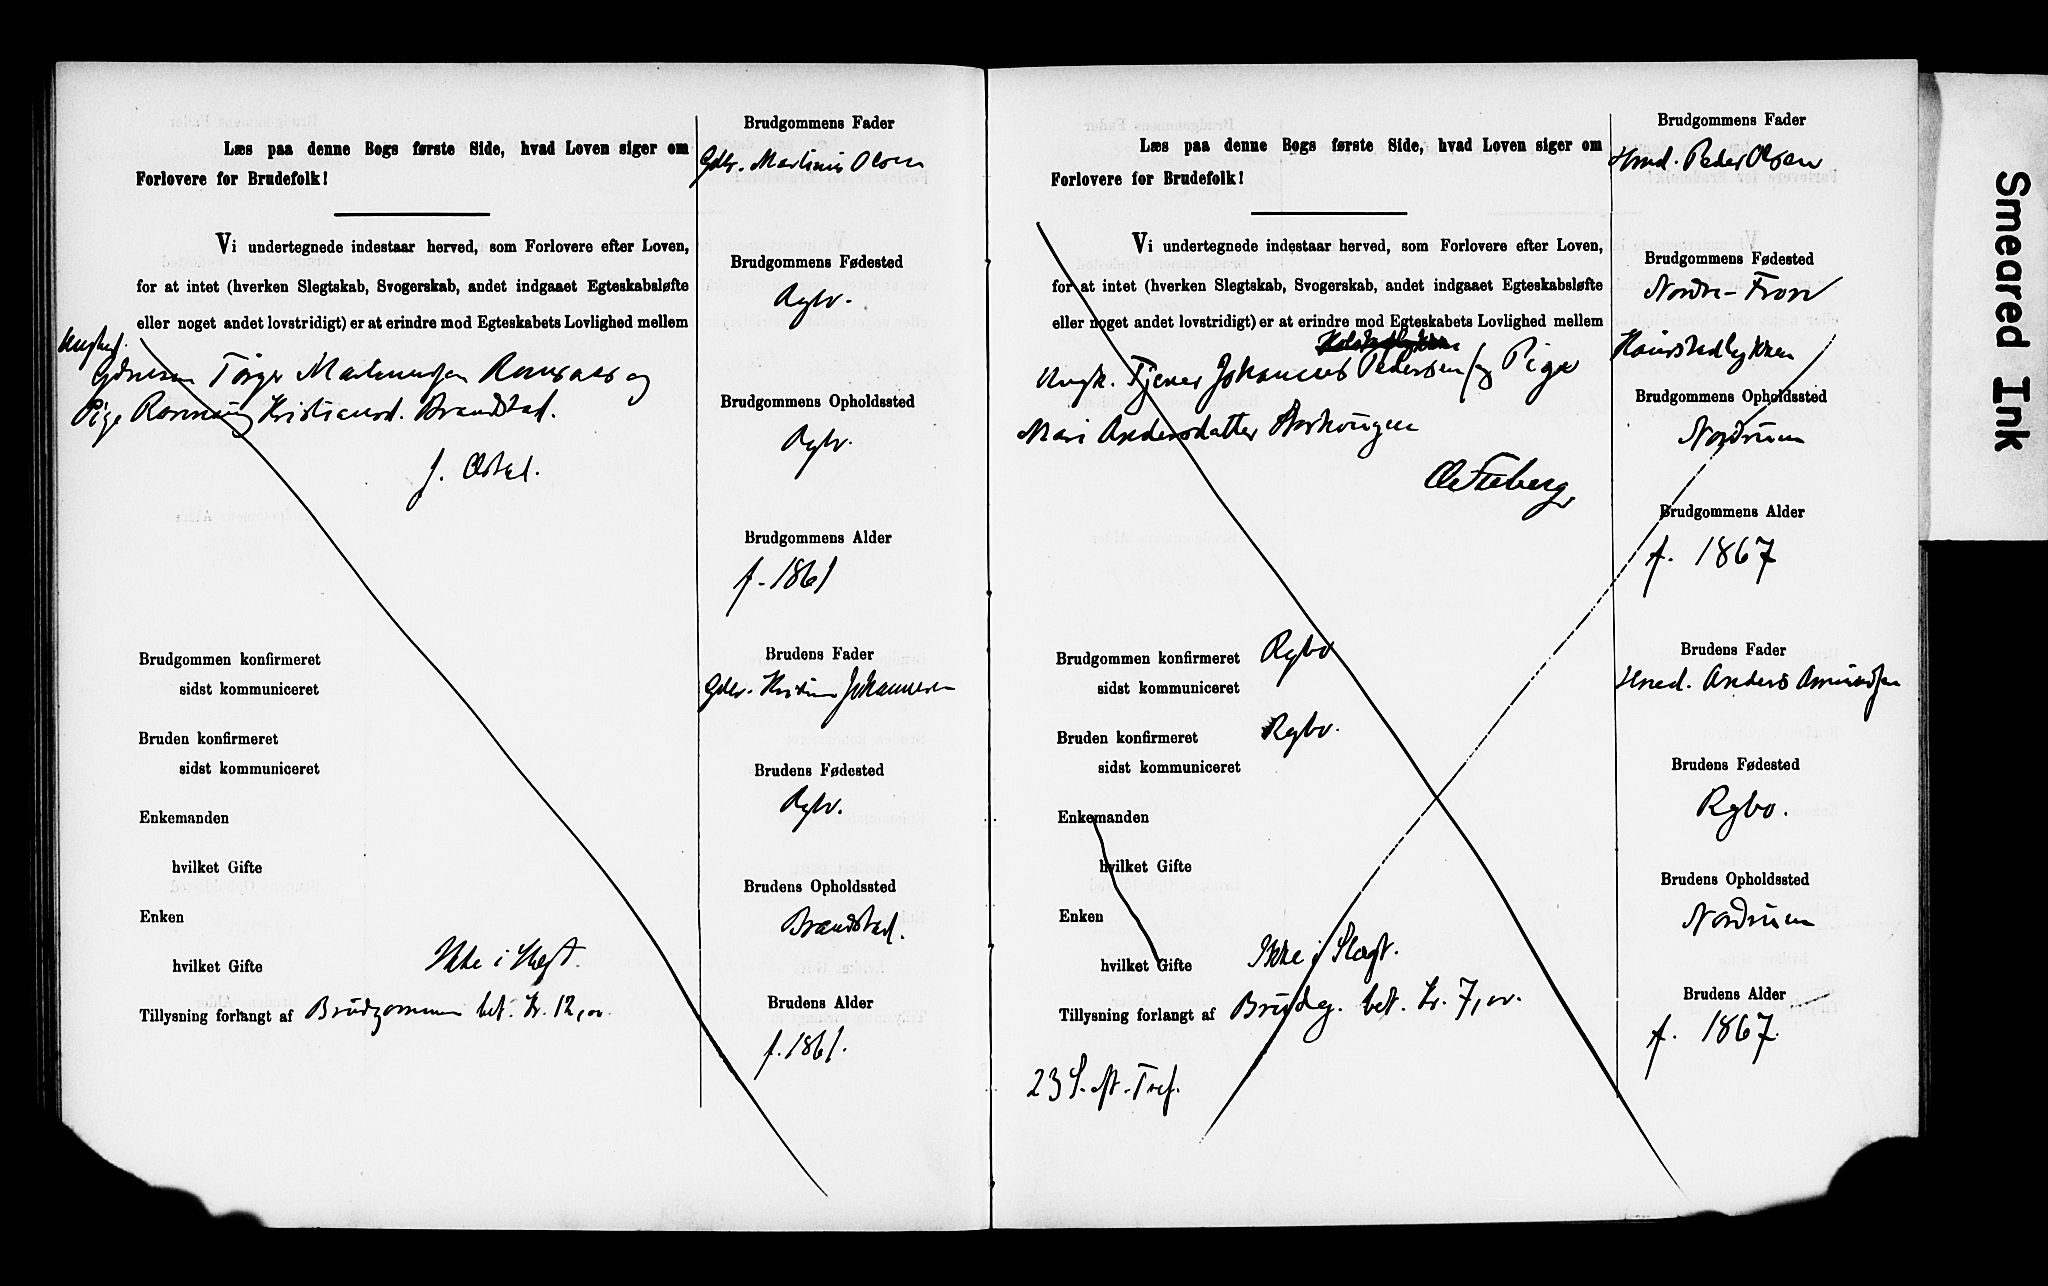 Læs paa denne Bogs første Side, hvad Loven siger om
Forlovere for Brudefolk!
Vi undertegnede indestaar herved, som Forlovere efter Loven,
for at intet (hverken Slegtskab, Svogerskab, andet indgaaet Egteskabsløfte
eller noget andet lovstridigt) er at erindre mod Egteskabets Lovlighed mellem
Ungkarl
Torger og
Pige Kristiansd. Brandstad.
Brudgommen konfirmeret
sidst kommuniceret
Bruden konfirmeret
sidst kommuniceret
Enkemanden
hvilket Gifte
Enken
hvilket Gifte Ikke i Slegt.
Tillysning forlangt af Brudgommen bet. Kr. 12,00.
Brudgommens Fader
Gdbr. Martinius Olsen
Brudgommens Fødested
Rgbo.
Brudgommens Opholdssted
Rgbo.
Brudgommens Alder
f. 1861
Brudens Fader
Gdbr. Kristian Johannesen
Brudens Fødested
Rgbo.
Brudens Opholdssted
Brandstad.
Brudens Alder
f. 1861.
Læs paa denne Bogs første Side, hvad Loven siger om
Forlovere for Brudefolk!
Vi undertegnede indestaar herved, som Forlovere efter Loven,
for at intet (hverken Slegtskab, Svogerskab, andet indgaaet Egteskabsløfte
eller noget andet lovstridigt) er at erindre mod Egteskabets Lovlighed mellem
Ungk. Tjener Johannes Pedersen og Pige
Mari Andersdatter
Brudgommen konfirmeret Rgbo
sidst kommuniceret
Bruden konfirmeret Rgbo.
sidst kommuniceret
Enkemanden
hvilket Gifte
Enken
hvilket Gifte Ikke i Slægt.
Tillysning forlangt af Brudg. bet. Kr. 7,00.
23 S. eft. Tref.
Brudgommens Fader
Hmd. Peder Olsen
Brudgommens Fødested
Nordre-Fron
Brudgommens Opholdssted
Nordrum
Brudgommens Alder
f. 1867
Brudens Fader
Hmd. Anders Amundsen
Brudens Fødested
Rgbo.
Brudens Opholdssted
Nordrum
Brudens Alder
f. 1867.
Smeared Ink